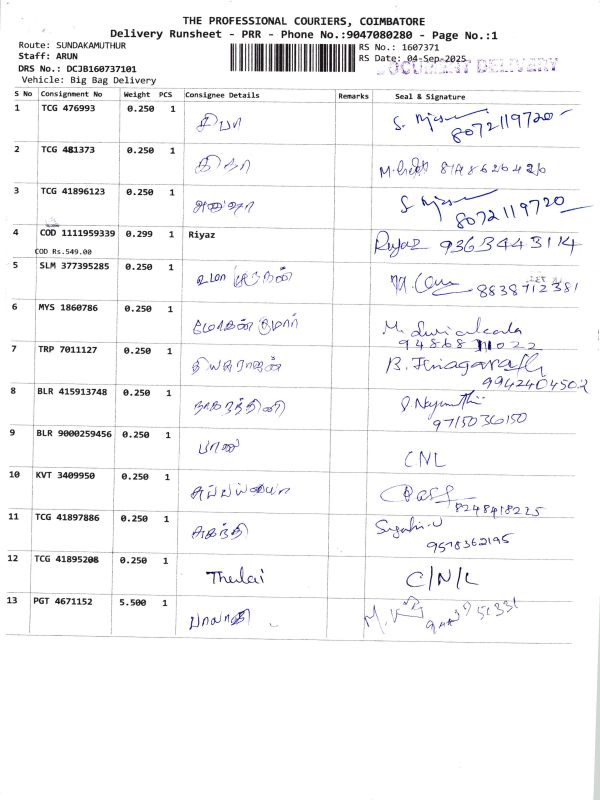 THE PROFESSIONAL COURIERS, COIMBATORE
Delivery Runsheet - PRR - Phone No.:9047080280 - Page No.:1
Route: SUNDAKAMUTHUR
Staff: ARUN
DRS No.: DCJB160737101
Vehicle: Big Bag Delivery
RS No.: 1607371
RS Date: 04-Sep-2025
DOCUMENT DELIVERY
S No Consignment No Weight PCS Consignee Details Remarks Seal & Signature
1 TCG 476993 0.250 1 சிபா
8072119720
2 TCG 481373 0.250 1
3 TCG 41896123 0.250 1
8072119720
4 COD 1111959339 0.299 1 Riyaz Riyaz 9363443114
COD Rs.549.00
5 SLM 377395285 0.250 1 உமா முருகன்
8838712381
6 MYS 1860786 0.250 1 மோகன் குமார்
7 TRP 7011127 0.250 1 தியாகராஜன்
9942404502
8 BLR 415913748 0.250 1 நாகநந்தினி
9715036150
9 BLR 9000259456 0.250 1 பானு CNL
10 KVT 3409950 0.250 1
8248418225
11 TCG 41897886 0.250 1 சுகந்தி
9578362195
12 TCG 41895208 0.250 1 Thulai C/N/L
13 PGT 4671152 5.500 1 பாலாஜி